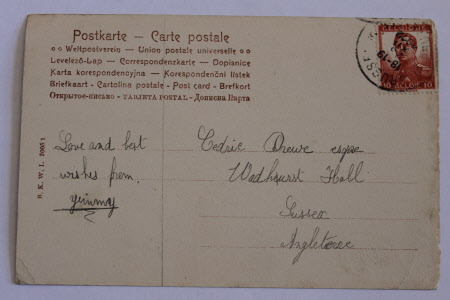 Postkarte – Carte postale
Weltpostverein – Union postale universelle
Levelező-Lap – Correspondenzkarte – Dopisnice
Karta korespondencyjna – Korespondenční lístek
Briefkaart – Cartolina postale – Post card – Brefkort
Открытое письмо – TARJETA POSTAL – Дописна Карта
BELGIQUE
10 10
B. K. W. I. 2005 1
Love and best
wishes from
Cedric Drewe esqre
Wadhurst Hall
Sussex
Angleterre